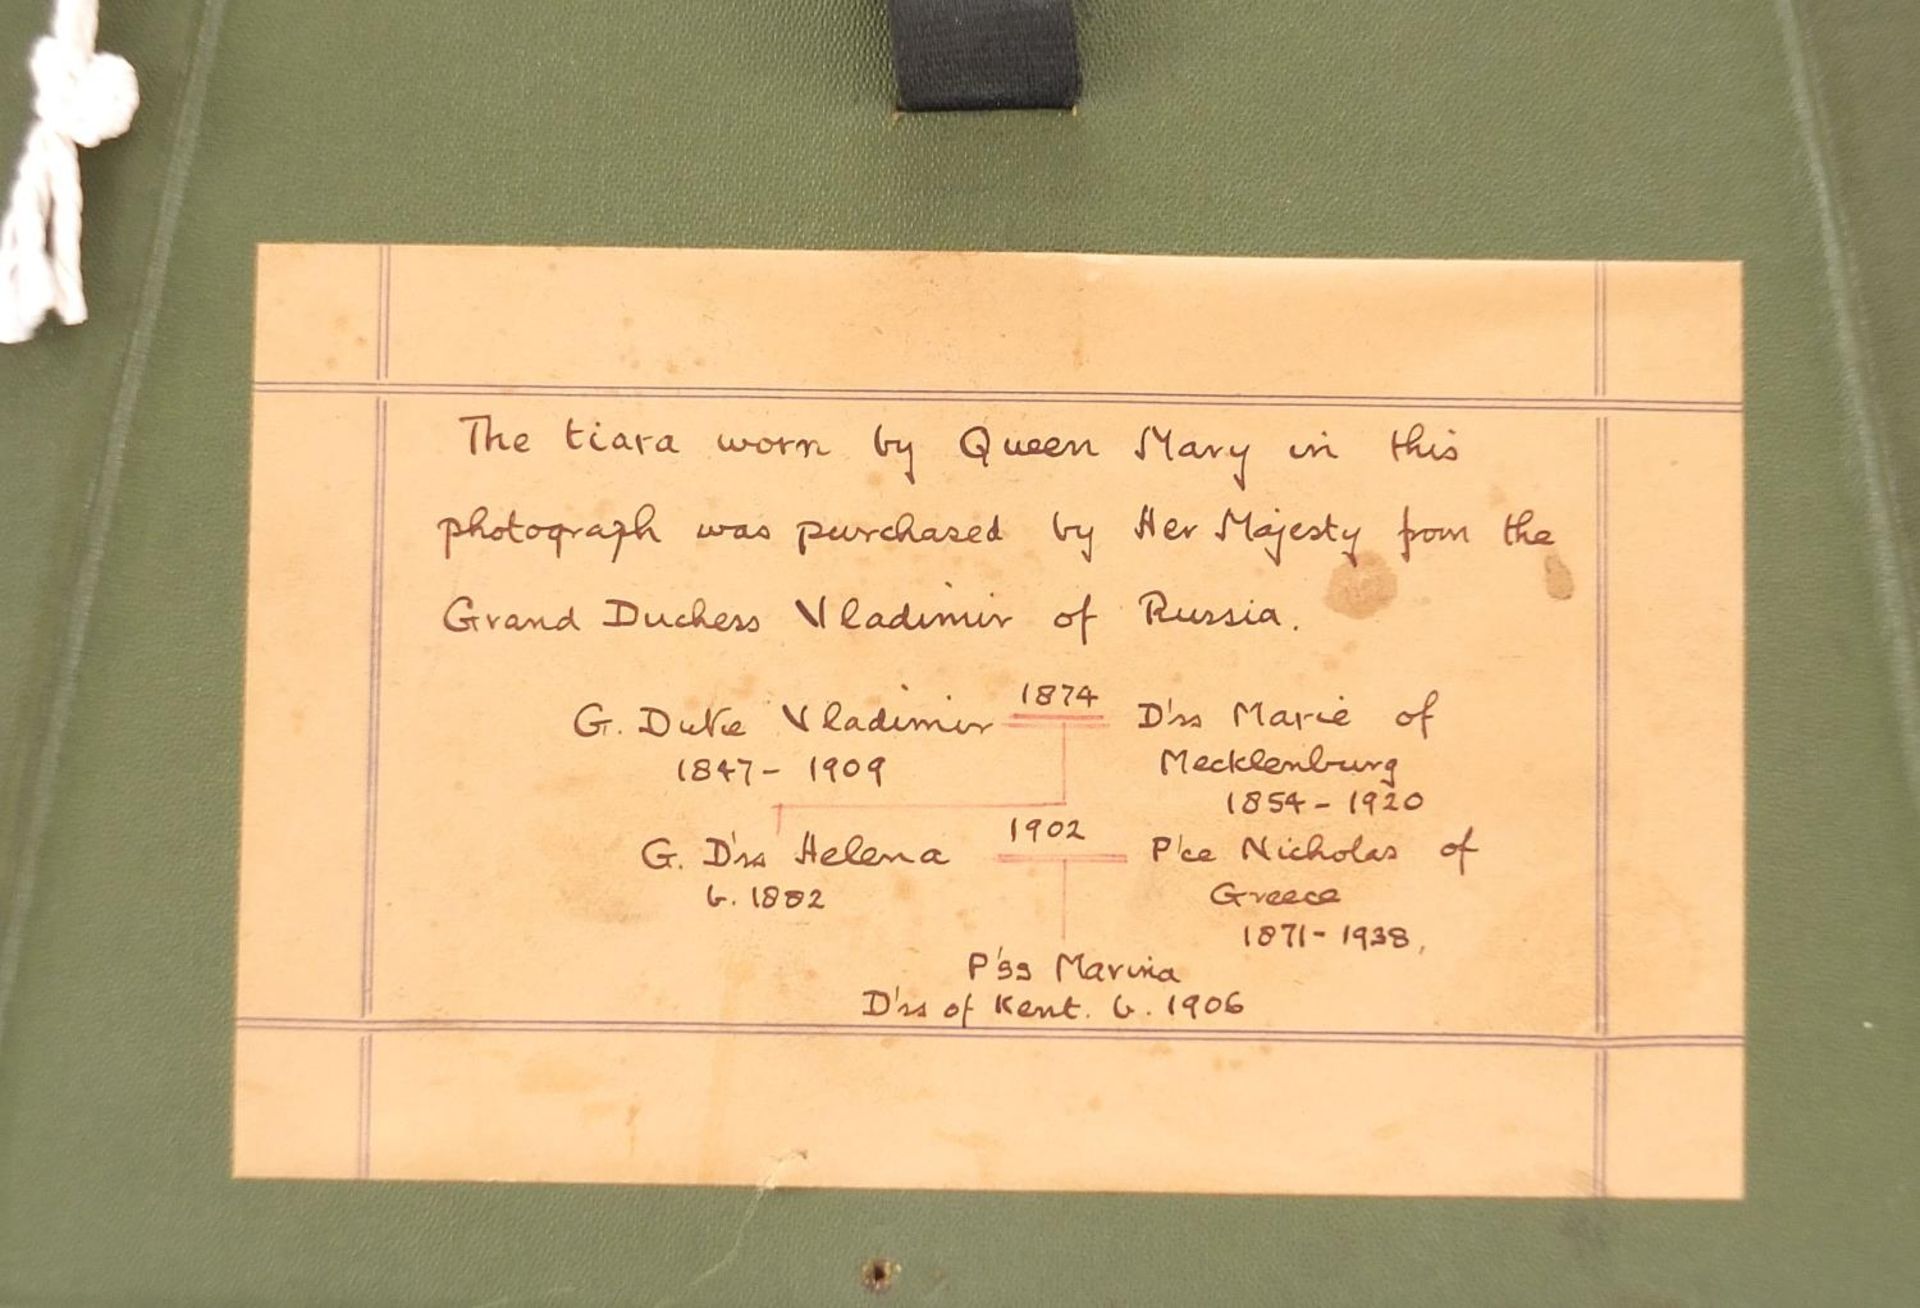 The tiara worn by Queen Mary in this
photograph was purchased by Her Majesty from the
Grand Duchess Vladimir of Russia.
G. Duke Vladimir 1874 D'ss Marie of
1847 - 1909 Mecklenburg
1854 - 1920
G. D'ss Helena 1902 P'ce Nicholas of
b. 1882 Greece
1871 - 1938,
P'ss Marina
D'ss of Kent. b. 1906